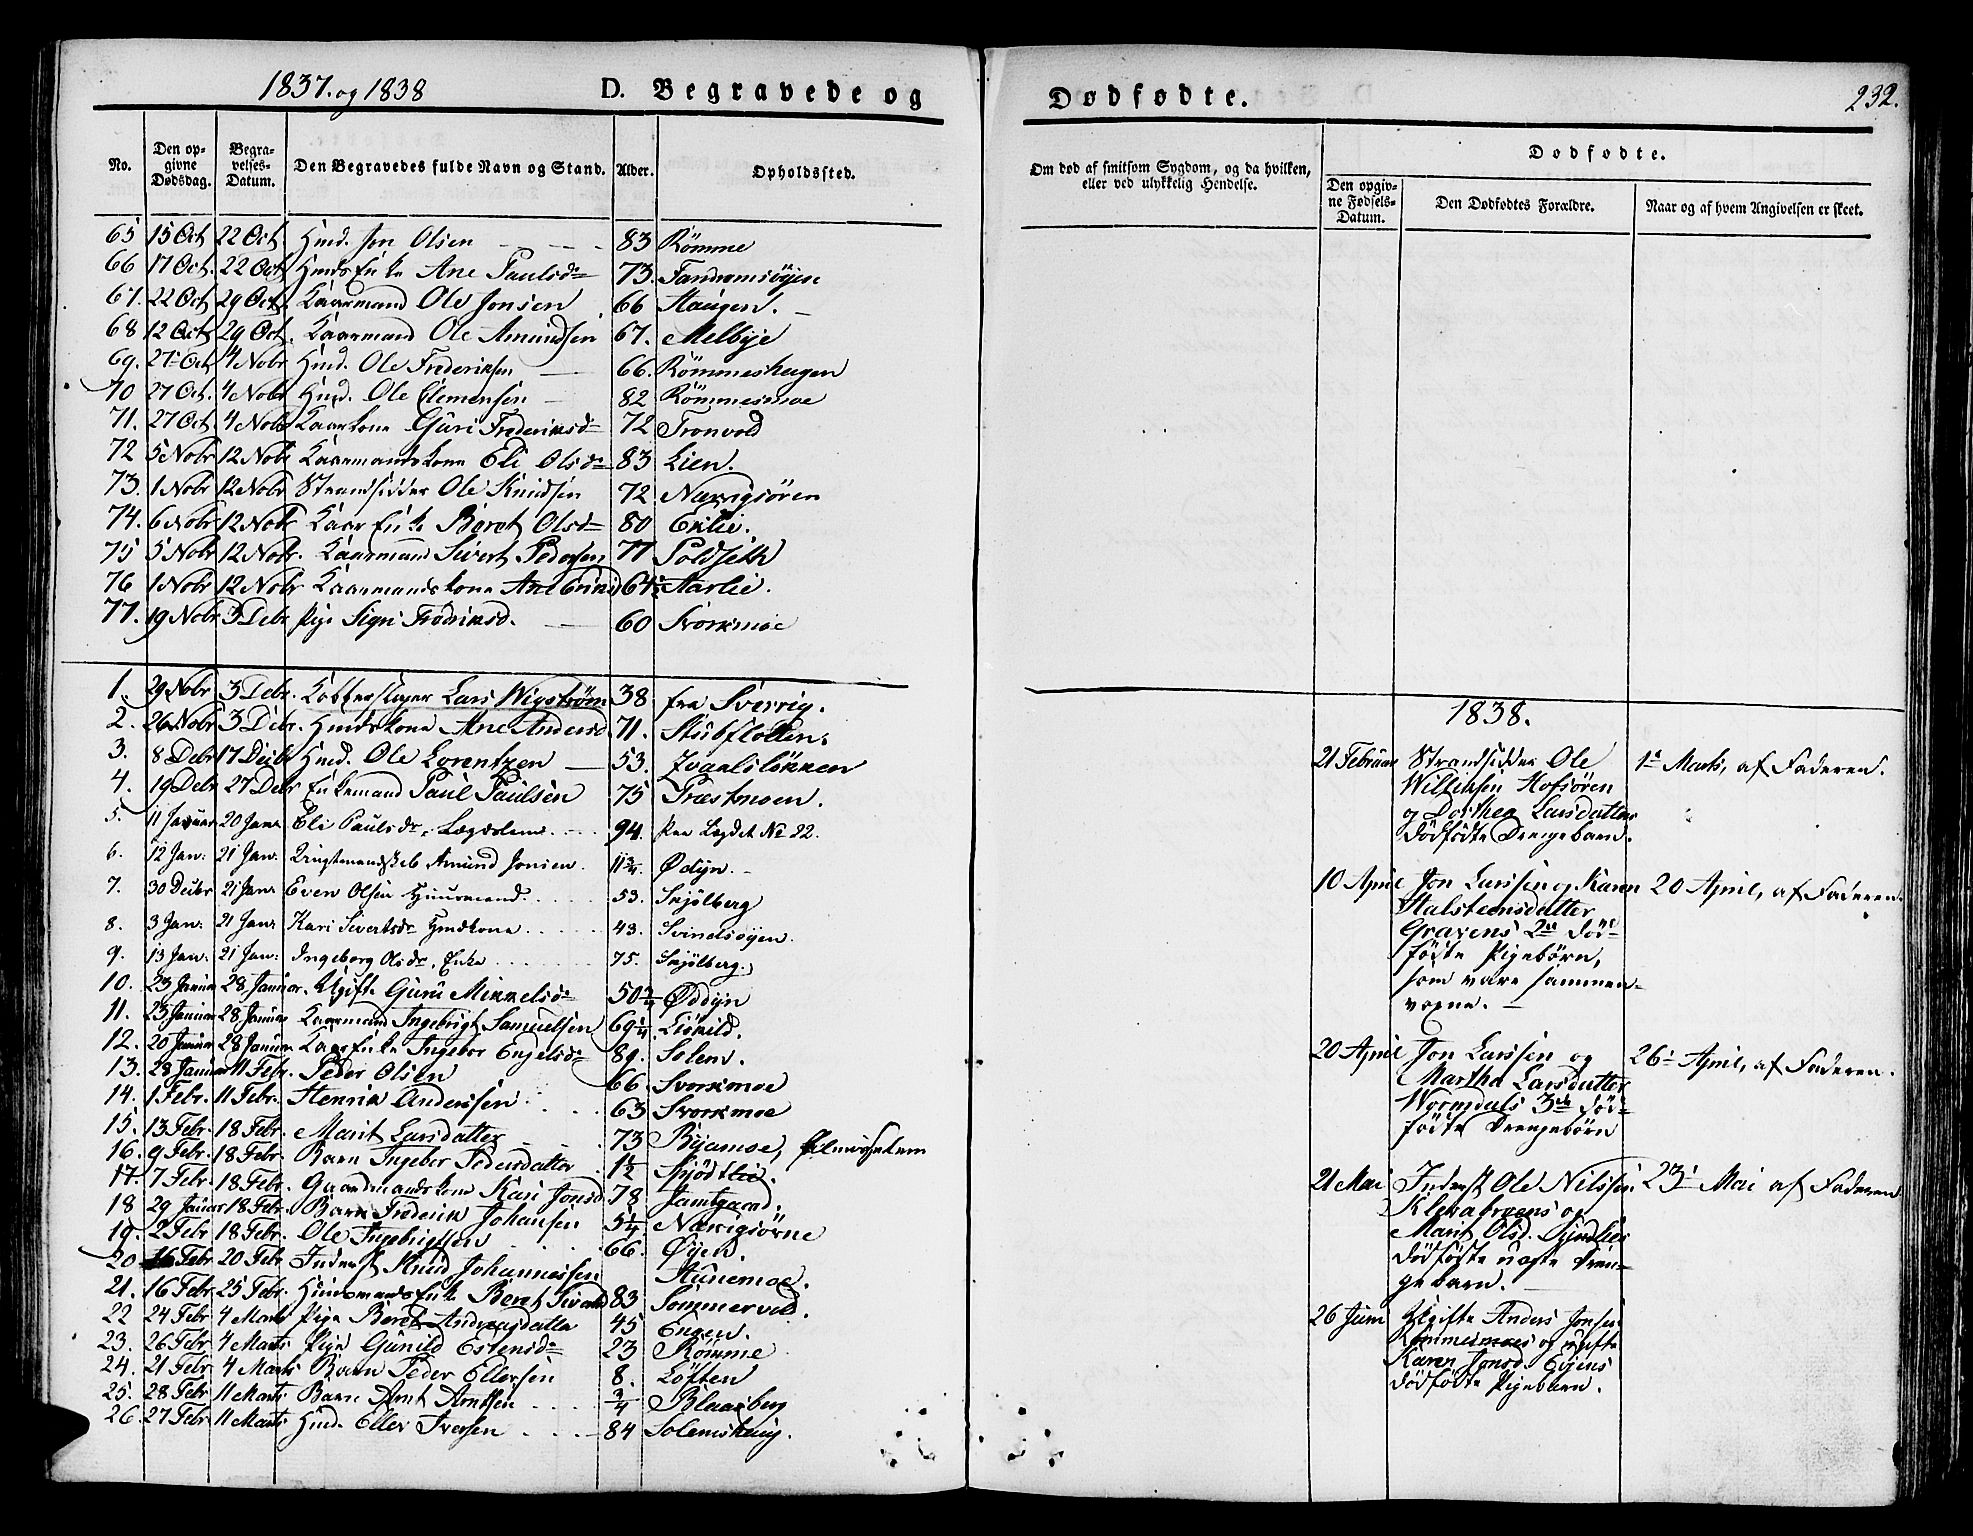 1837. og 1838
D. Begravede og
Dødfødte.
232.
No.
Den op-
givne
Dødsdag.
Begra-
velses-
Datum.
Den Begravedes fulde Navn og Stand.
Alder.
Opholdssted.
Om død af smitsom Sygdom, og da hvilken,
eller ved ulykkelig Hendelse.
Dødfødte.
Den opgiv-
ne Fødsels-
Datum.
Den Dødfødtes Forældre.
Naar og af hvem Angivelsen er skeet.
65 15 Oct 22 Oct. Hmd. Jon Olsen 83 Römme
66 17 Oct. 22 Oct Hmds Enke Ane Paulsdr 73.
67. 22 Oct 29 Oct. Kaarmand Ole Jonsen 66 Haugen.
68 12 Oct 29 Oct. Kaarmand Ole Amundsen 67. Melbÿe
69. 27 Oct 4 Nobr Hmd. Ole Frederiksen 66. Römmeshaugen
70 27 Oct. 4 Nobr Hmd. Ole Clemensen 82 Römmesmoe
71. 27 Oct 4 Nobr Kaarkone Guri Frederiksdr 72 Tronvold
72 5 Nobr 12 Nobr Kaarmandskone Eli Olsdr 83 Lien.
73. 1 Nobr 12 Nobr Strandsidder Ole Knudsen 72 Nærvigsören
74. 6 Nobr 12 Nobr Kaar Enke Beret Olsd 80 Eklie.
75 5 Nobr 12 Nobr. Kaarmand Sivert Pedersen 77 Soldseth
76 1 Nobr 12 Nobr Kaarmandskone Ane Eriksd 64 Aarlie.
77. 19 Nobr 3 Debr Pige Sigri Fredriksd. 60 Svorkmoe
1. 29 Nobr 3 Debr. Kobberslager Lars Wigström 38 fra Sverrig.
2. 26 Nobr 3 Debr. Hmdskone Ane Andersd 71. Stubflotten.
3. 8 Debr 17 Decbr Hmd. Ole Lorentzen 53.
4. 19 Debr 27 Debr Enkemand Paul Paulsen 75 Præstmoen.
5. 11 Januar 20 Janu Eli Paulsdr. Lægdslem 94. paa Lægdet No 22.
6. 12 Jan: 21 Jan: Amund Jonsen. 11 3/4 Ødÿn.
7. 30 Decbr 21 Jan. Even Olsen Huusmand. 53. Skjölberg
8. 3 Jan: 21 Jan: Kari Sivertsdr Hmdkone 43. Svindsøyen.
9. 13 Jan: 21 Jan: Ingeborg Olsdr. Enke 75. Skjölberg.
10. 23 Januar 28 Januar. Ugift Guru Mikkelsdr 50 3/4 Øddÿn
11. 23 Januar 28 Januar Kaarmand Ingebrigt Samuelsen 69 1/4
12. 20 Januar 28 Januar Kaar Enke Ingebor Engelsdr 89. Solem.
13. 28 Januar 11 Febr. Peder Olsen 66 Svorkmoe
14. 1 Febr. 11 Febr. Henrik Anderssen 63 Svorkmoe
15. 13 Febr. 18 Febr. Marit Larsdatter 73 Byamoe,
16. 9 Febr. 18 Febr. Barn Ingebor Pedersdatter 1 1/2 Skjödtlie.
17. 7 Febr. 18 Febr. Gaardmandskone Kari Jonsd 78 Jamtgaard.
18 29 Januar 18 Febr. Barn Frederik Johansen 5 1/4 Nærvigsörne
19. 2 Febr. 18 Febr. Ole Ingebrigtsen 66. Øÿen.
20 16 Febr 20 Febr. Inderst Knud Johannessen Stunemoe.
21. 16 Febr. 25 Febr. Huusmands Enke Beret 83 Sommervold.
22 24 Febr. 4 Marts Pige Beret Andreasdatter 45 Engen.
23. 26 Febr. 4 Marts Pige Gunild Estensdr 23 Römme
24. 21 Febr. 4 Marts Barn Peder Ellersen 8. Löften
25. 28 Febr. 11 Marts Barn Arnt Arntsen 3/4 Blaasberg
26. 27 Febr. 11 Marts Hmd. Eller Iversen 84 Solemshaug.
1838.
21 Februar Strandsidder Ole 1te Marts, af Faderen.
Willumsen Hofsören
og Dorthea Larsdatters
dödfödte Drengebarn.
10 April Jon Larssen og Karen 20 April, af Faderen.
Halsteinsdatter
Gravens 2de död-
födte Pigebörn,
som vare sammen-
voxne.
20 April Jon Larssen og 26 April, af Faderen.
Martha Larsdatter
Wormdals 3de död-
födte Drengebörn
21 Mai Inderst Ole Nilssen 23 Mai af Faderen
og
Marit Olsd.
dödfödte uægte Dren-
gebarn.
26 Juni Ugifte Anders Jonsen
Römmesmoes og ugifte
Karen Jonsd. Evjens
dödfödte Pigebarn.